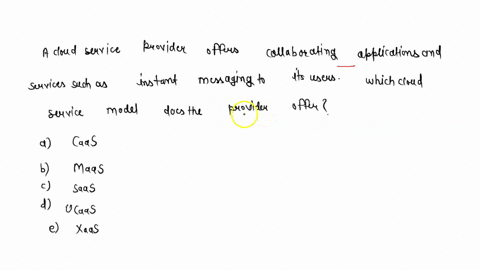 A cloud service Provider offers collaborating applications and
services such as instant messaging to its users. which cloud
service model does the provider offer?
a) CaaS
b) MaaS
c) SaaS
d) UCaaS
e) XaaS